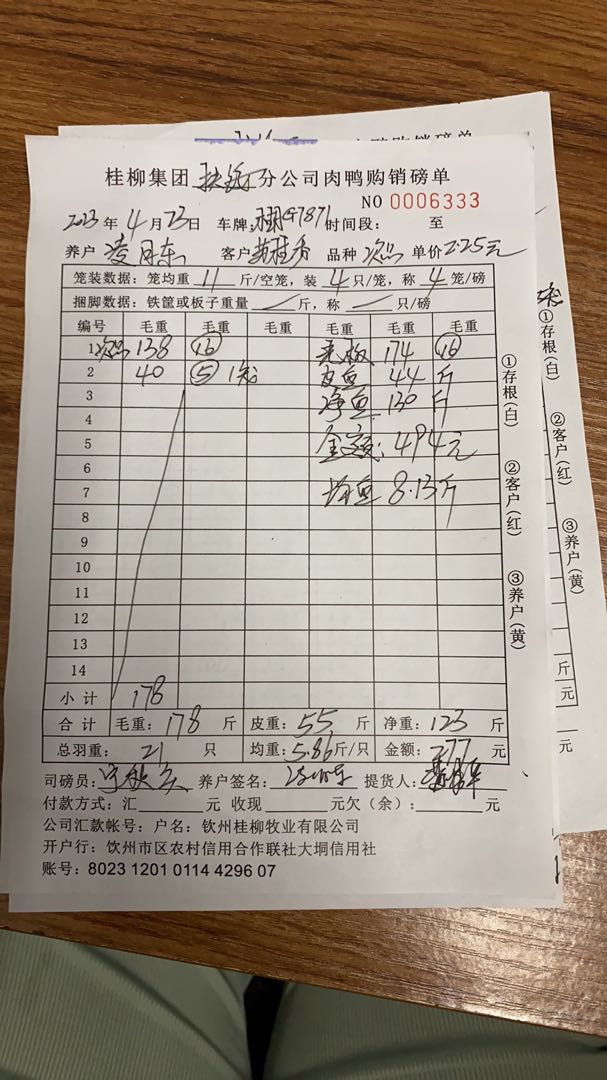 桂柳集团 扶绥 分公司肉鸭购销磅单
NO 0006333
2023 年 4 月 23 日 车牌: G7871 时间段: 至
养户 凌月东 客户 黄桂香 品种 次品 单价 2.25元
笼装数据: 笼均重 11 斤/空笼, 装 4 只/笼, 称 4 笼/磅
捆脚数据: 铁筐或板子重量 斤, 称 只/磅
编号 毛重 毛重 毛重 毛重 毛重 毛重
1 次品 138 16 老板 174 16
2 40 5 1笼 皮重 44 斤
3 净重 130 斤
4
5 金额: 494元
6
7 均重 8.13斤
8
9
10
11
12
13
14
小计 178
合计 毛重: 178 斤 皮重: 55 斤 净重: 123 斤
总羽重: 21 只 均重: 5.86 斤/只 金额: 277 元
司磅员: 养户签名: 提货人:
付款方式: 汇 元 收现 元欠(余): 元
公司汇款帐号: 户名: 钦州桂柳牧业有限公司
开户行: 钦州市区农村信用合作联社大垌信用社
账号: 8023 1201 0114 4296 07
①存根(白) ②客户(红) ③养户(黄)
①存根(白) ②客户(红) ③养户(黄)
斤
元
元